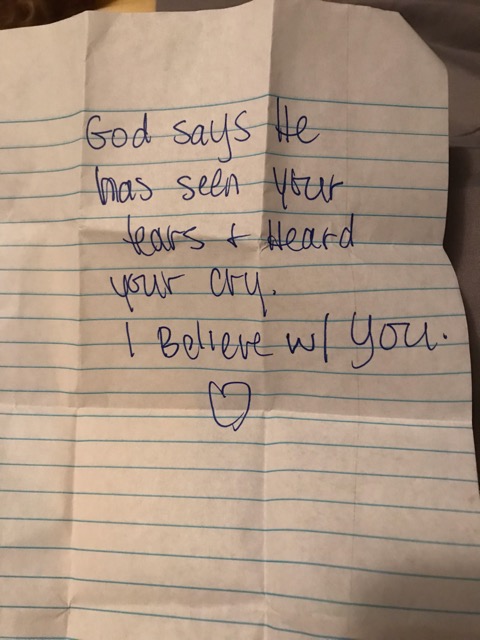 God says He
has seen your
tears + Heard
your cry.
I Believe w/ YOU.